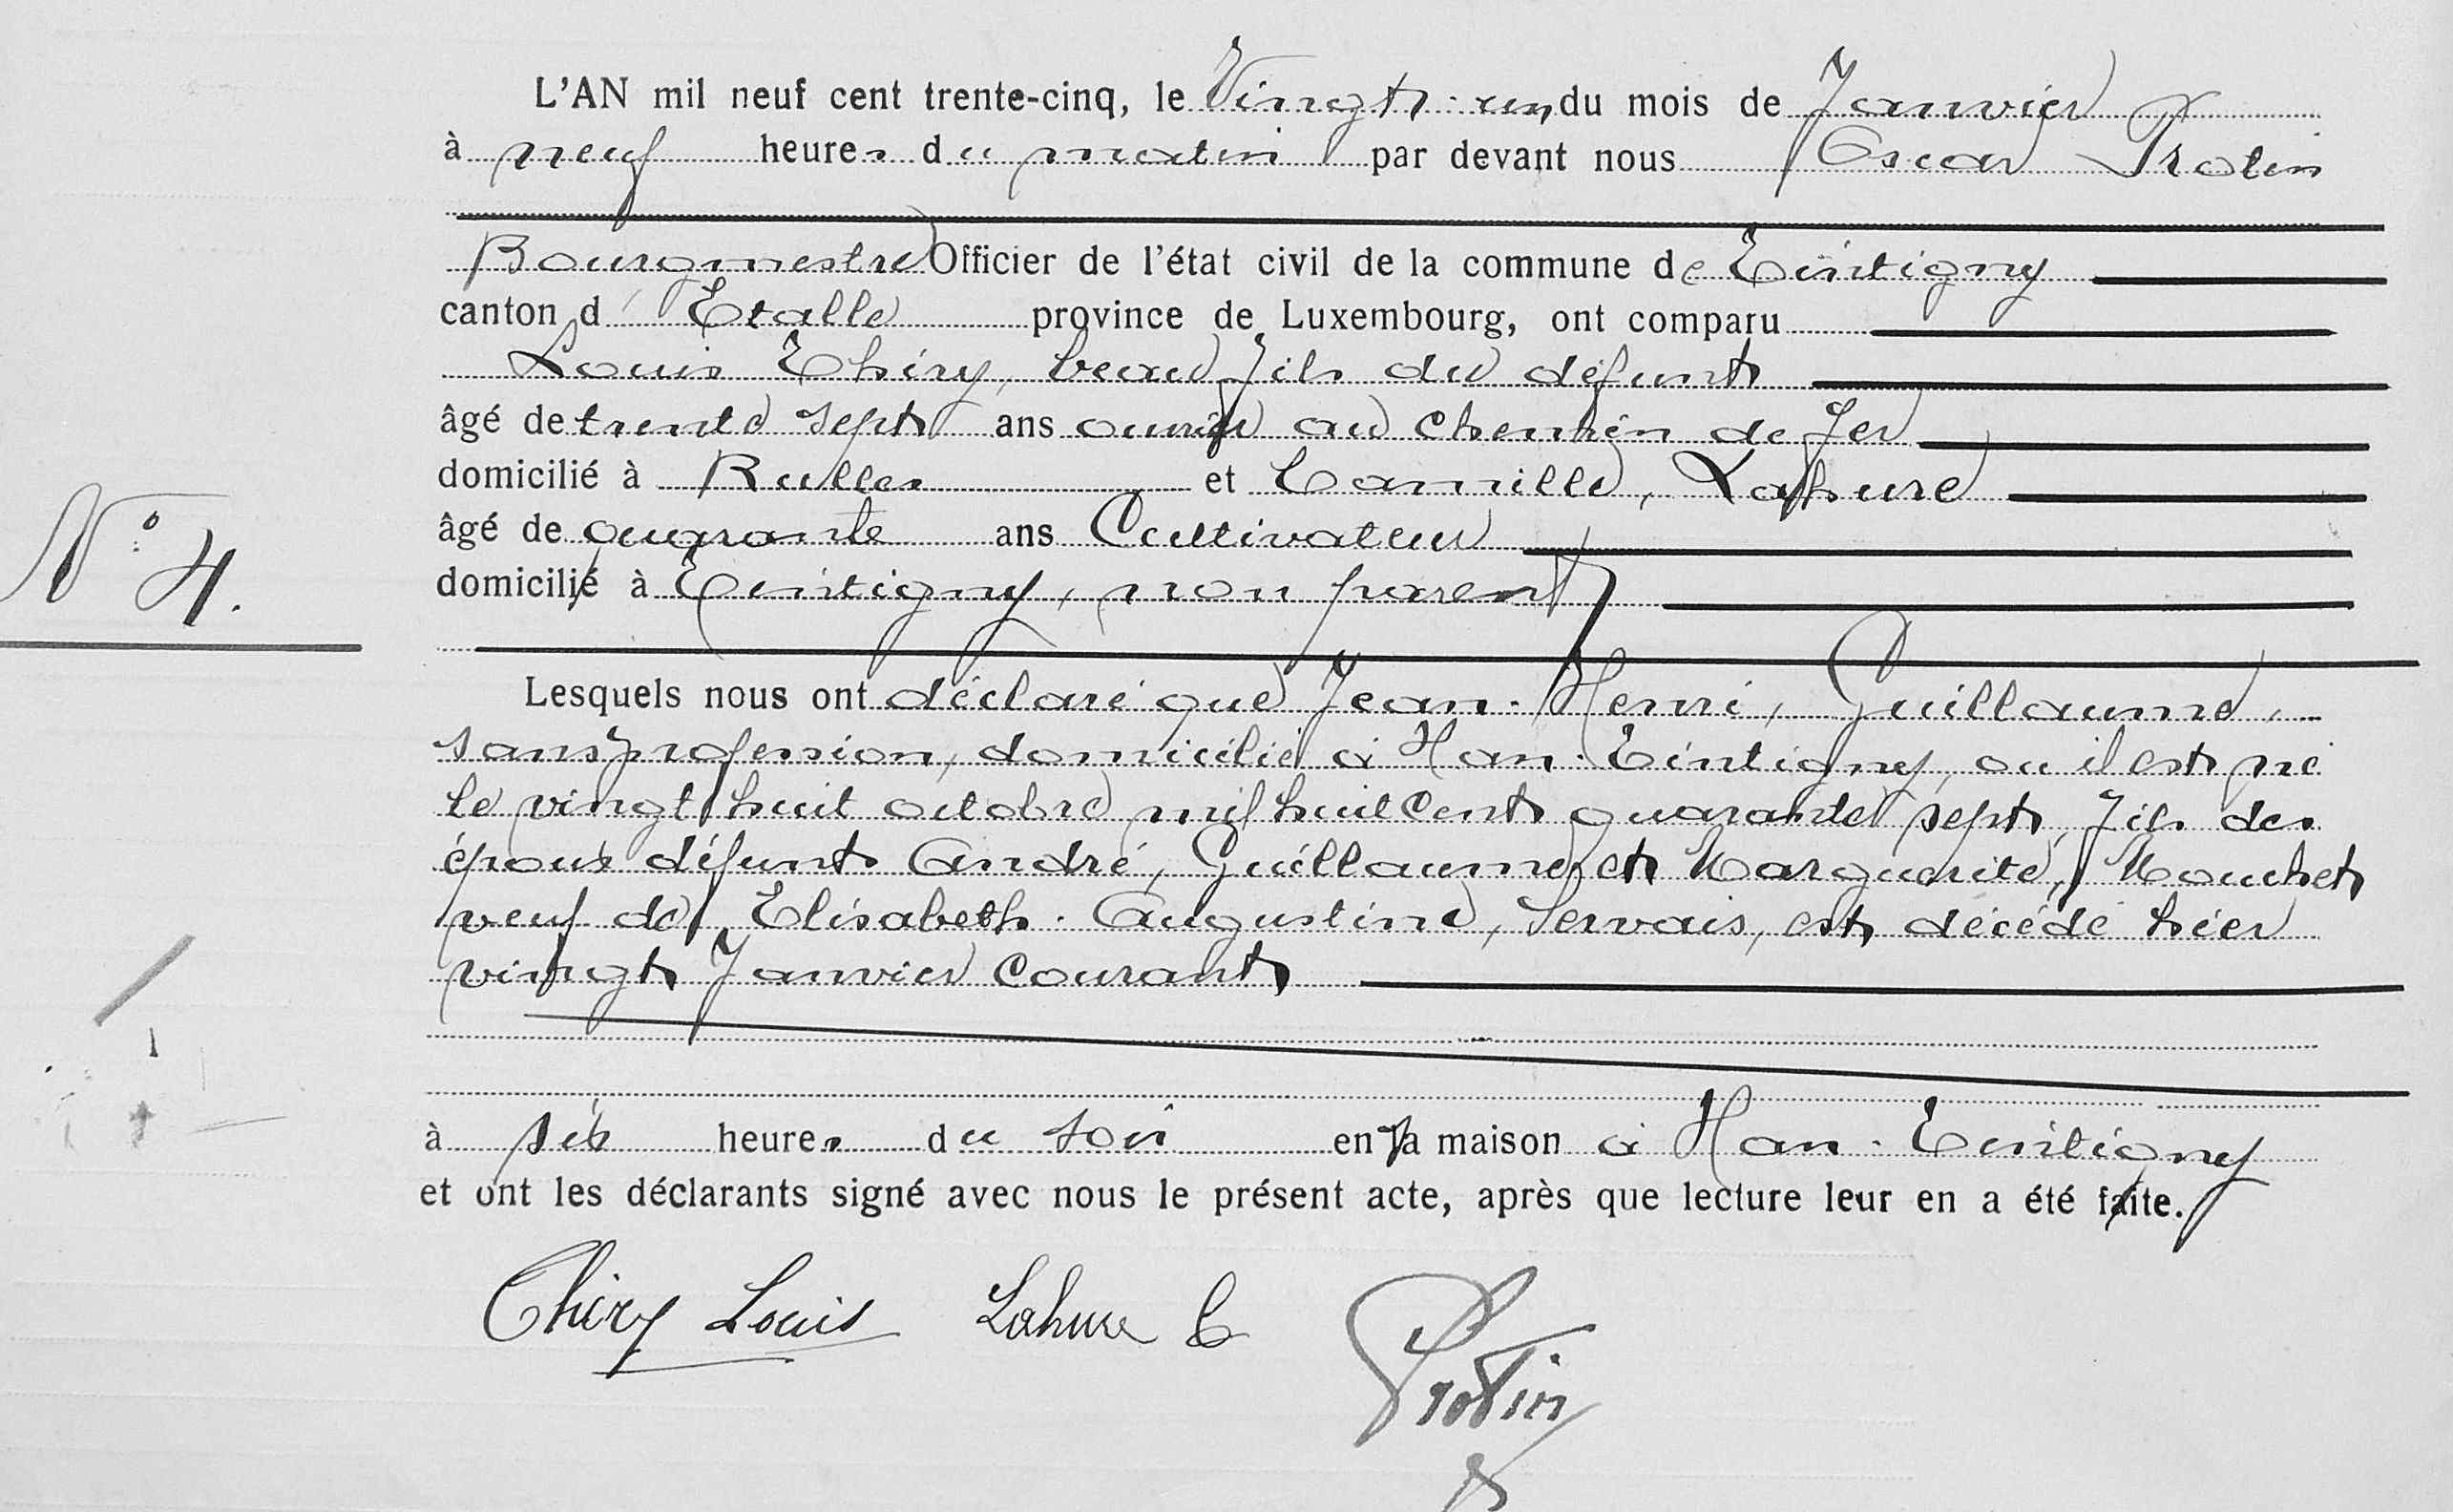 L'AN mil neuf cent trente-cinq, le Vingt-un du mois de Janvier
à neuf heures du matin par devant nous Oscar Protin
Bourgmestre Officier de l'état civil de la commune de Tintigny
canton d'Etalle province de Luxembourg, ont comparu
Louis Thiry, beau fils du défunt
âgé de trente sept ans ouvrier au chemin de fer
domicilié à Rulles et Camille, Lahure
âgé de quarante ans Cultivateur
domicilié à Tintigny, non parent
N° 4.
Lesquels nous ont déclaré que Jean-Henri, Guillaume,
sans profession, domicilié à Han-Tintigny, ou il est né
le vingt huit octobre mil huit cent quarante sept, fils des
époux défunts André, Guillaume et Marguerite, Mouchet
veuf de Elisabeth-Augustine, Servais, est décédé hier
vingt Janvier courant
à six heures du soir en sa maison à Han-Tintigny
et ont les déclarants signé avec nous le présent acte, après que lecture leur en a été faite.
Thiry Louis Lahure C Protin